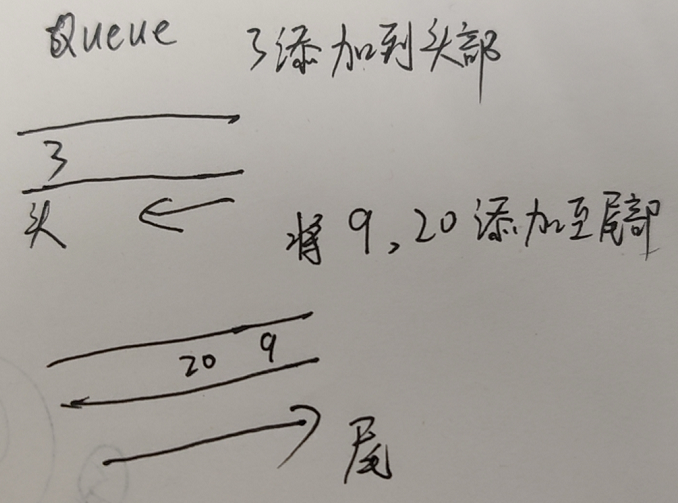 Queue 3添加到头部
3
头
将9,20添加至尾部
20 9
尾